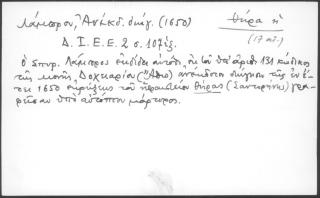 Λάμπρου, Ἀνέκδ. διήγ. (1650) Θήρα ἡ
(17 αἰ.)
Δ. Ι. Ε. Ε. 2 σ. 107 ἑξ.
Ὁ Σπυρ. Λάμπρος ἐκδίδει αὐτόθι, ἐκ τοῦ ὑπ' ἀριθ. 131 κώδικος
τῆς μονῆς Δοχειαρίου (Ἄθω) ἀνέκδοτον διήγησιν τῆς ἐν ἔ-
τει 1650 ἐκρήξεως τοῦ ἡφαιστείου Θήρας (Σαντορήνης) γρα-
φεῖσαν ὑπὸ αὐτόπτου μάρτυρος.